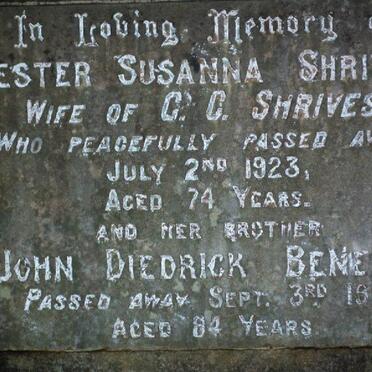 In Loving Memory o
ESTER SUSANNA SHRI
WIFE OF G. C. SHRIVES
WHO PEACEFULLY PASSED AW
JULY 2ND 1923,
AGED 74 YEARS.
AND HER BROTHER
JOHN DIEDRICK BENE
PASSED AWAY SEPT. 3RD 19
AGED 84 YEARS